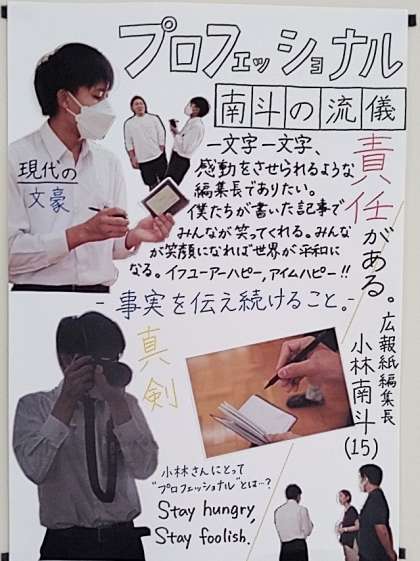 プロフェッショナル
南斗の流儀
一文字一文字、
感動をさせられるような
編集長でありたい。
僕たちが書いた記事で
みんなが笑ってくれる。みんな
が笑顔になれば世界が平和に
なる。イフユーアーハピー,アイムハピー!!
責任がある。
現代の
文豪
-事実を伝え続けること。-
真剣
広報紙編集長
小林南斗
(15)
小林さんにとって
"プロフェッショナル"とは…?
Stay hungry,
Stay foolish.